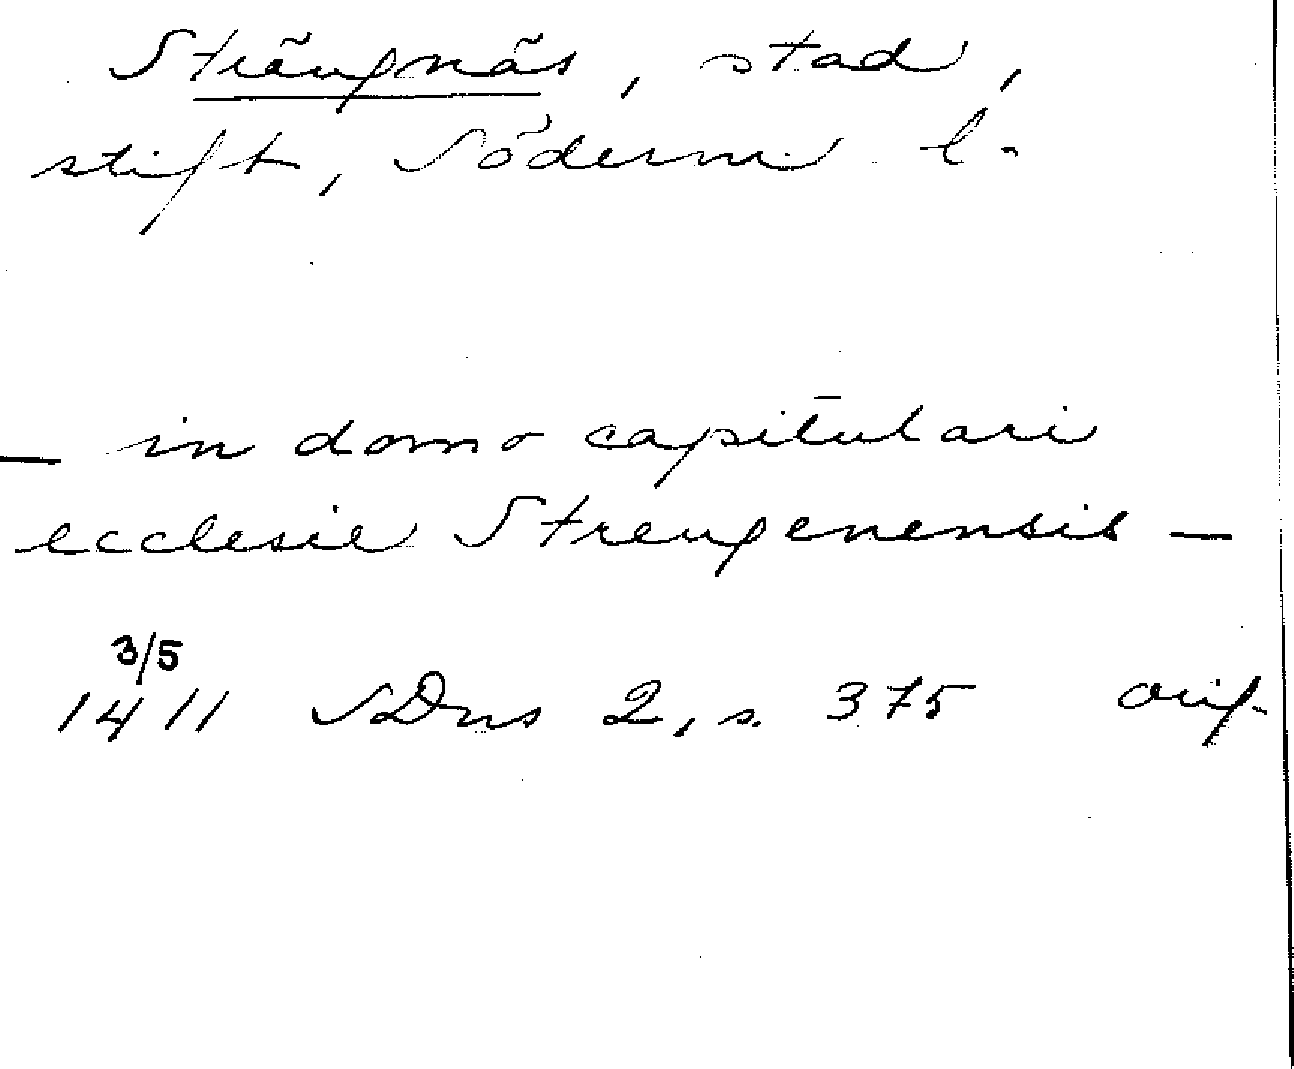 Strängnäs, stad,
stift, Söderm l.
— in domo capitulari
ecclesie Strengenensis —
3/5
1411 SDns 2, s. 375 orig.